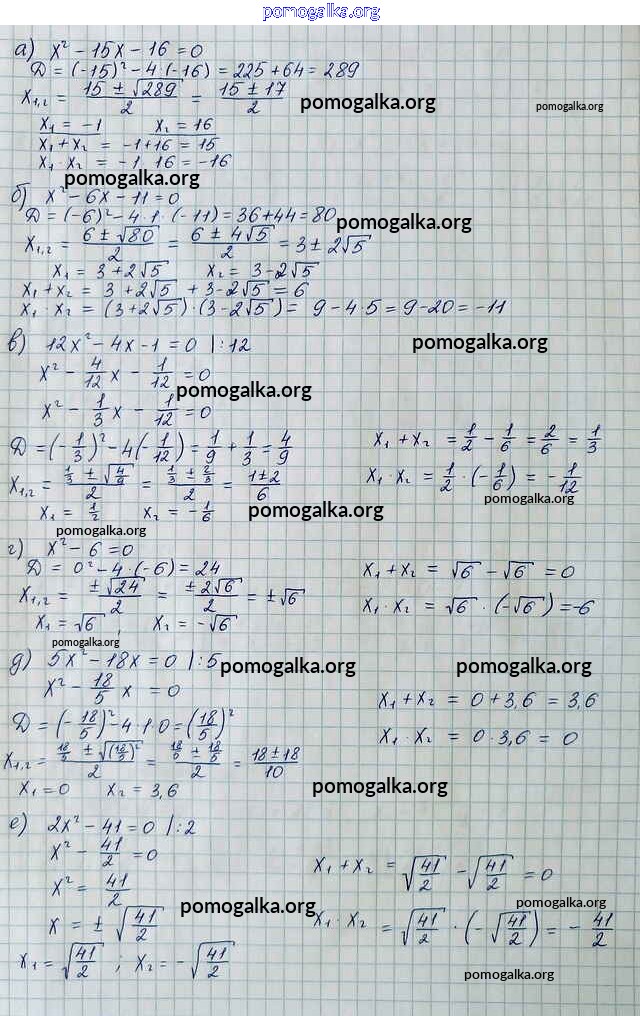 pomogalka.org
а) x² - 15x - 16 = 0
D = (-15)² - 4·(-16) = 225 + 64 = 289
x₁,₂ = (15 ± √289)/2 = (15 ± 17)/2
pomogalka.org
pomogalka.org
x₁ = -1 x₂ = 16
x₁ + x₂ = -1 + 16 = 15
x₁ · x₂ = -1 · 16 = -16
pomogalka.org
б) x² - 6x - 11 = 0
D = (-6)² - 4·1·(-11) = 36 + 44 = 80
pomogalka.org
x₁,₂ = (6 ± √80)/2 = (6 ± 4√5)/2 = 3 ± 2√5
x₁ = 3 + 2√5 x₂ = 3 - 2√5
x₁ + x₂ = 3 + 2√5 + 3 - 2√5 = 6
x₁ · x₂ = (3 + 2√5)·(3 - 2√5) = 9 - 4·5 = 9 - 20 = -11
в) 12x² - 4x - 1 = 0 |:12
pomogalka.org
x² - 4/12 x - 1/12 = 0
pomogalka.org
x² - 1/3 x - 1/12 = 0
D = (-1/3)² - 4(-1/12) = 1/9 + 1/3 = 4/9
x₁ + x₂ = 1/2 - 1/6 = 2/6 = 1/3
x₁,₂ = (1/3 ± √(4/9))/2 = (1/3 ± 2/3)/2 = (1 ± 2)/6
x₁ · x₂ = 1/2 · (-1/6) = -1/12
pomogalka.org
x₁ = 1/2 x₂ = -1/6
pomogalka.org
pomogalka.org
г) x² - 6 = 0
D = 0² - 4·(-6) = 24
x₁ + x₂ = √6 - √6 = 0
x₁,₂ = ±√24/2 = ±2√6/2 = ±√6
x₁ · x₂ = √6 · (-√6) = -6
x₁ = √6 ; x₂ = -√6
pomogalka.org
д) 5x² - 18x = 0 |:5
pomogalka.org
pomogalka.org
x² - 18/5 x = 0
x₁ + x₂ = 0 + 3,6 = 3,6
D = (-18/5)² - 4·1·0 = (18/5)²
x₁ · x₂ = 0 · 3,6 = 0
x₁,₂ = (18/5 ± √(18/5)²)/2 = (18/5 ± 18/5)/2 = (18 ± 18)/10
x₁ = 0 x₂ = 3,6
pomogalka.org
е) 2x² - 41 = 0 |:2
x² - 41/2 = 0
x₁ + x₂ = √(41/2) - √(41/2) = 0
x² = 41/2
pomogalka.org
pomogalka.org
x = ± √(41/2)
x₁ · x₂ = √(41/2) · (-√(41/2)) = -41/2
x₁ = √(41/2) ; x₂ = -√(41/2)
pomogalka.org